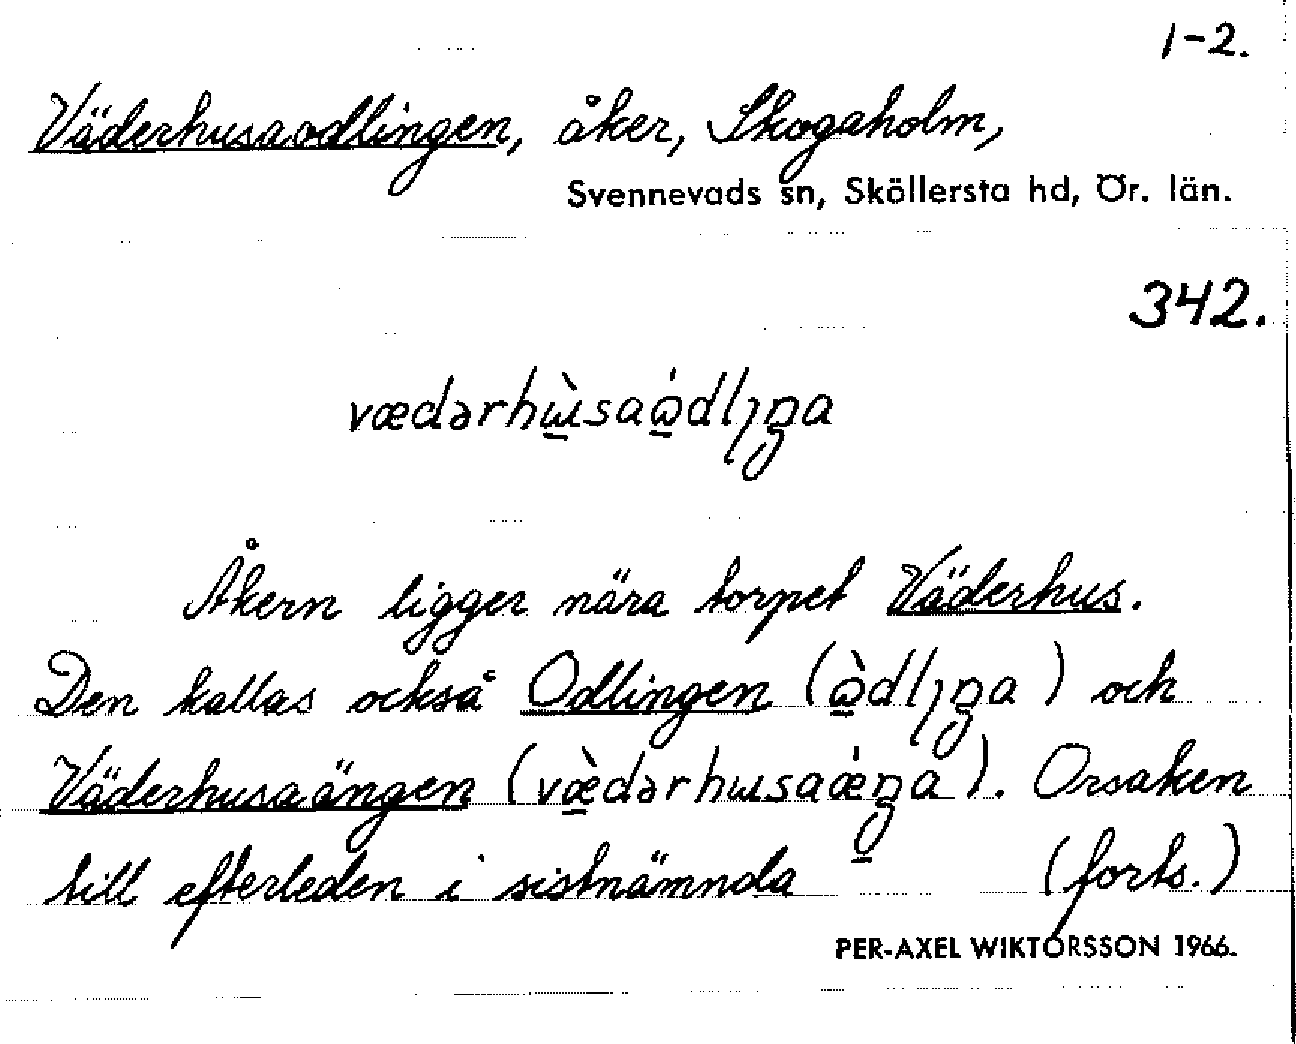 1-2.
Väderhusaodlingen, åker, Skogaholm,
Svennevads sn, Sköllersta hd, Ör. län.
342.
vædərhɯ̀saɷ́dlıŋa
Åkern ligger nära torpet Väderhus.
Den kallas också Odlingen (ɷ̀dlıŋa) och
Väderhusaängen (væ̀dərhɯsaǽŋa). Orsaken
till efterleden i sistnämnda (forts.)
PER-AXEL WIKTORSSON 1966.